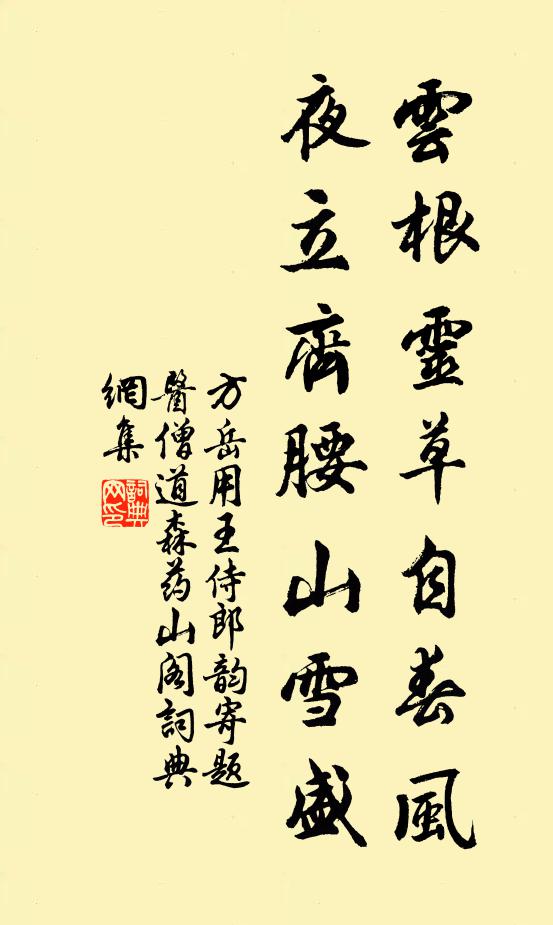 雲根靈草自春風
夜立齊腰山雪盛
方岳用王侍郎韵寄題
醫僧道森药山阁詞典
網集
詞典
网印